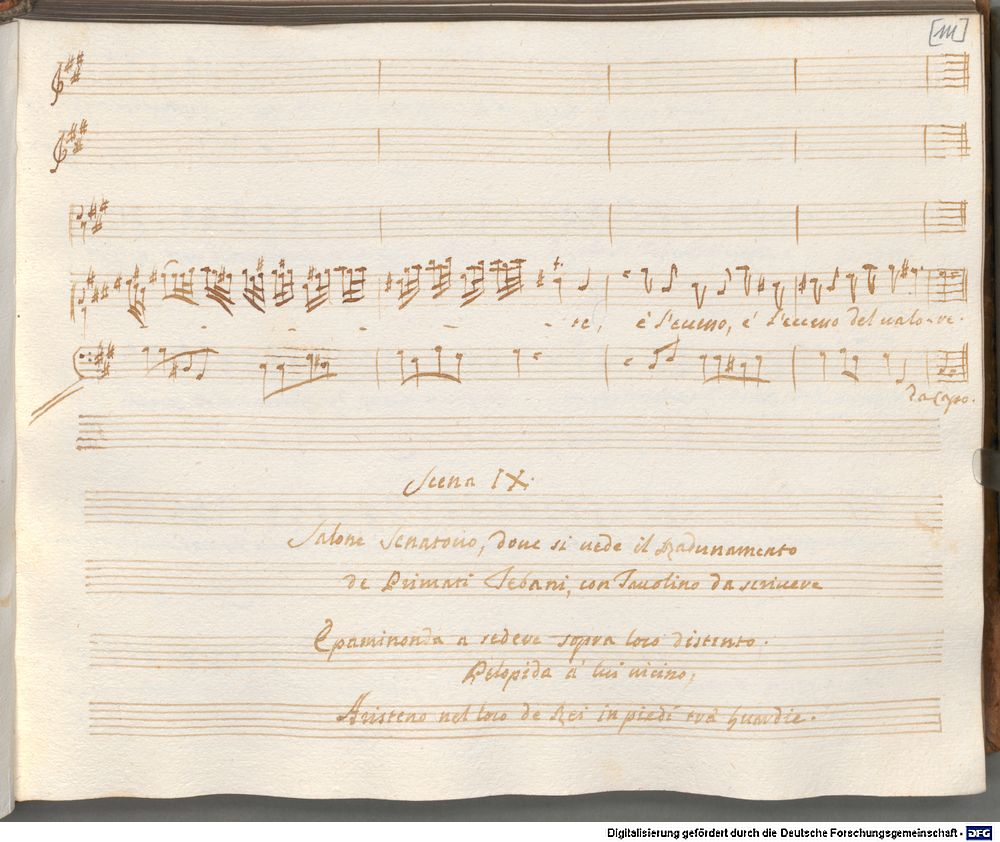 [111]
- - - - - te, è l'eccesso, è l'eccesso del valo-re.
Da Capo.
Scena IX.
Salone Senatorio, doue si uede il Radunamento
de Primati Tebani, con Tauolino da scriuere
Epaminonda a sedere sopra loco distinto.
Pelopida a' lui uicino,
Aristeno nel loco de Rei in piedi trà Guardie.
Digitalisierung gefördert durch die Deutsche Forschungsgemeinschaft - DFG